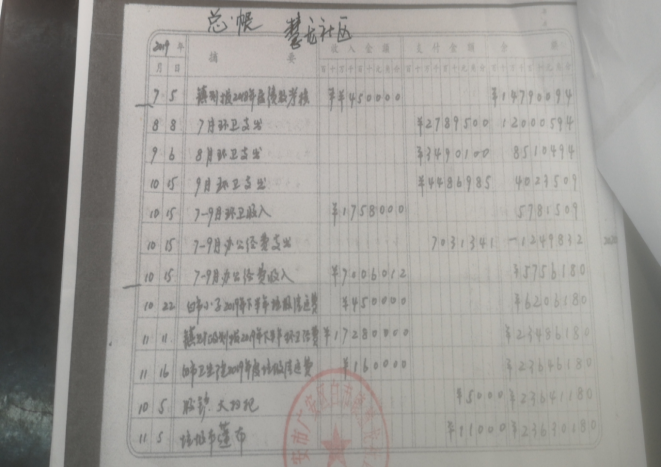 总帐 慧龙社区
2019年 摘要 收入金额 支付金额 余额
月 日
7 5 镇财拨2018年度绩效考核 ¥¥450000 ¥14790094
8 8 7月环卫支出 ¥2789500 12000594
9 6 8月环卫支出 ¥3490100 8510494
10 15 9月环卫支出 ¥4486985 4023509
10 15 7-9月环卫收入 ¥1758000 5781509
10 15 7-9月办公经费支出 7031341 -1249832
10 15 7-9月办公经费收入 ¥7006012 ¥5756180
10 22 2019年下半年垃圾清运费 ¥450000 ¥6206180
11 11 2019年下半年环卫经费 ¥17280000 ¥23486180
11 16 2019年度垃圾清运费 ¥160000 ¥23646180
10 5 ¥5000 ¥23641180
11 5 ¥11000 ¥23630180